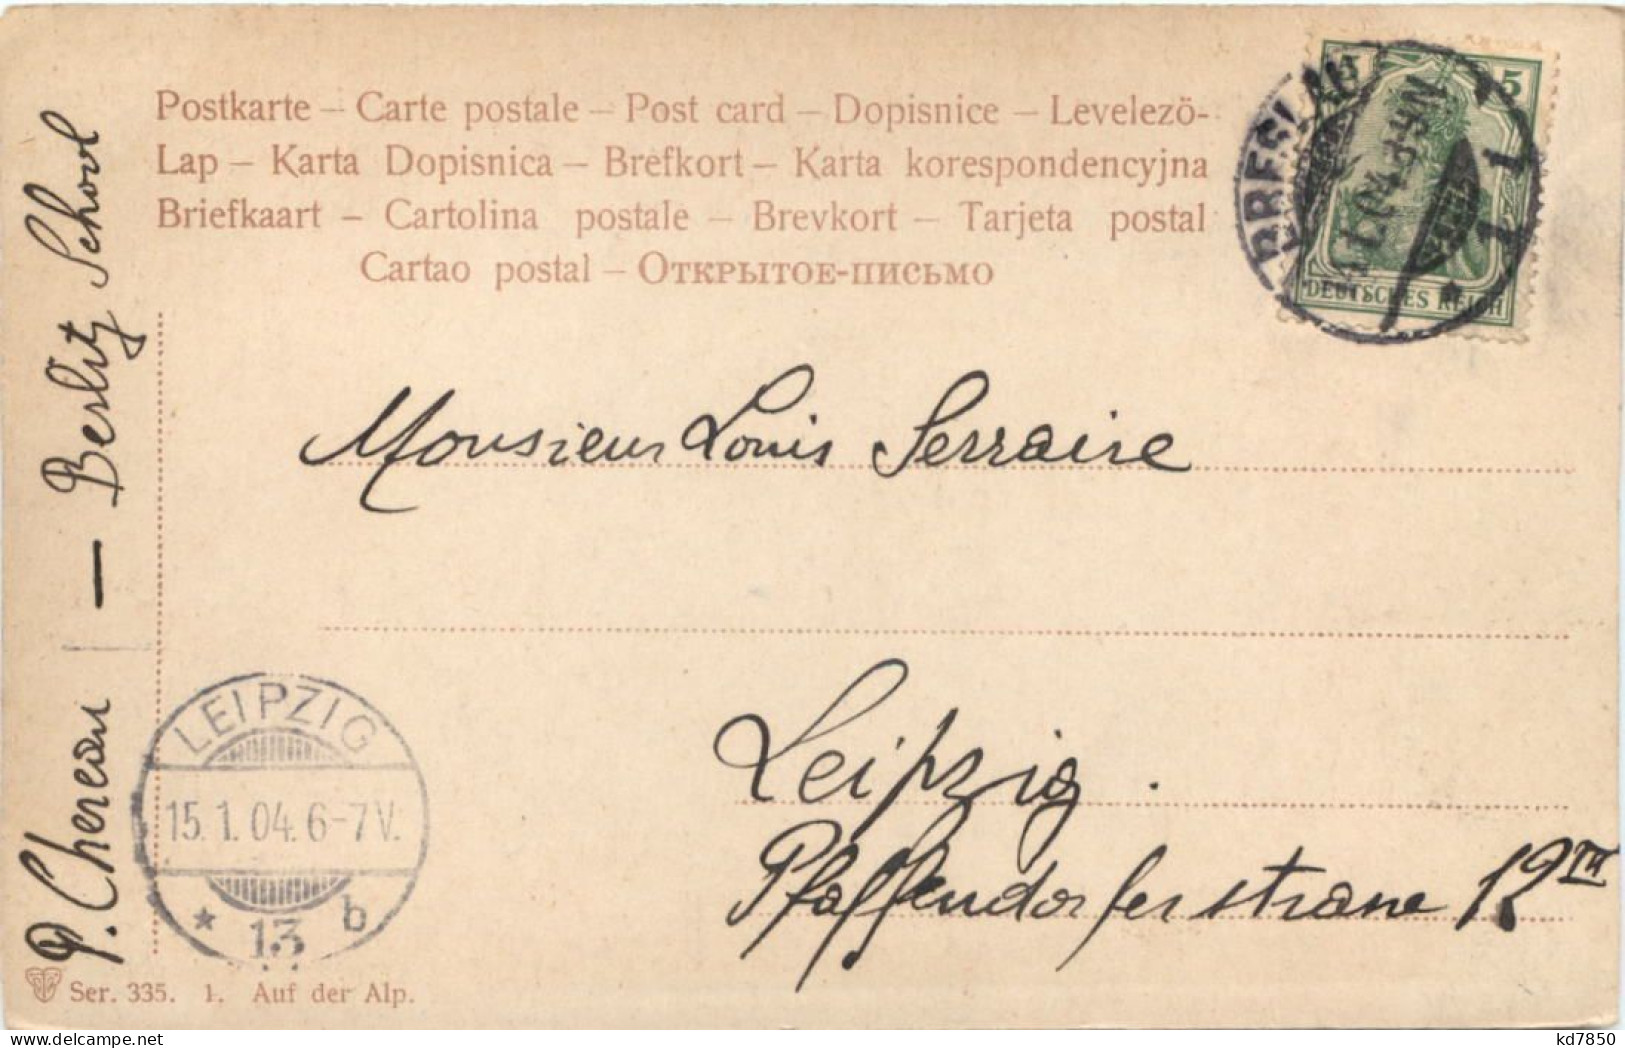 Postkarte – Carte postale – Post card – Dopisnice – Levelezö-
Lap – Karta Dopisnica – Brefkort – Karta korespondencyjna
Briefkaart – Cartolina postale – Brevkort – Tarjeta postal
Cartao postal – Открытое-письмо
5
BRESLAU
1. 04. 3-4N
1
DEUTSCHES REICH
Monsieur Louis Serraire
Leipzig.
Pfaffendorferstrasse 12 III
P. — Berlitz School
LEIPZIG
15. 1. 04. 6-7V.
* 13 b
Ser. 335. 1. Auf der Alp.
kd7850